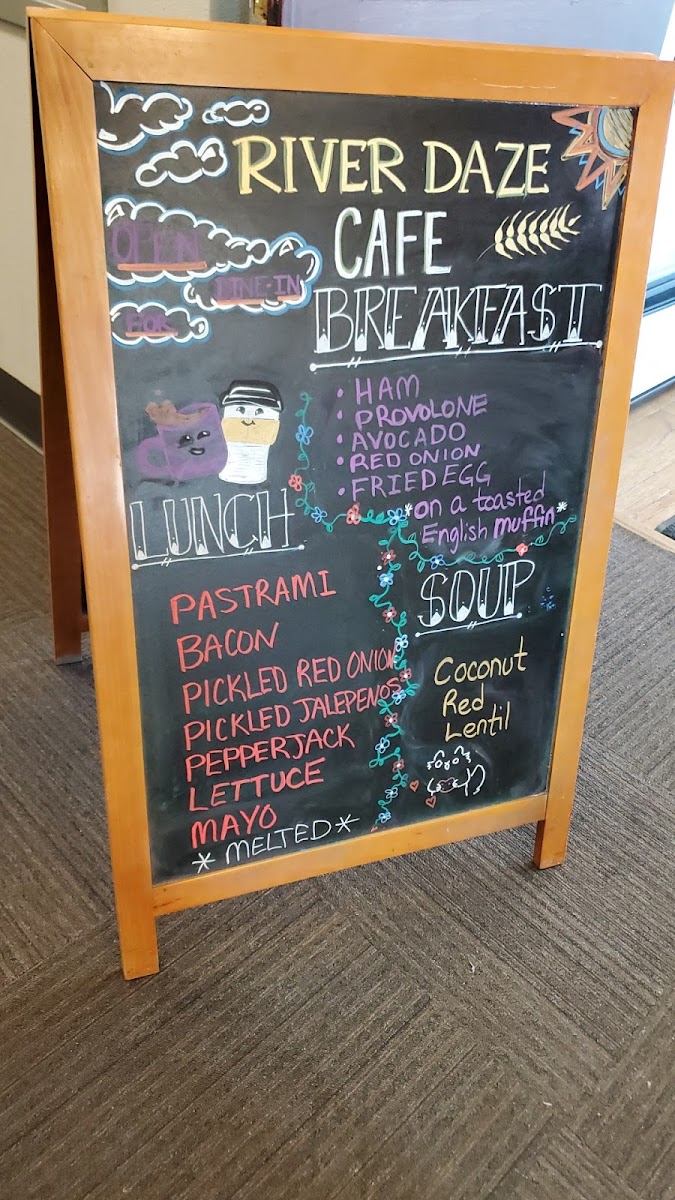 RIVER DAZE
CAFE
OPEN
DINE-IN
FOR
BREAKFAST
• HAM
• PROVOLONE
• AVOCADO
• RED ONION
• FRIED EGG
*on a toasted
English muffin*
LUNCH
PASTRAMI
BACON
PICKLED RED ONION
PICKLED JALEPENOS
PEPPERJACK
LETTUCE
MAYO
* MELTED *
SOUP
Coconut
Red
Lentil